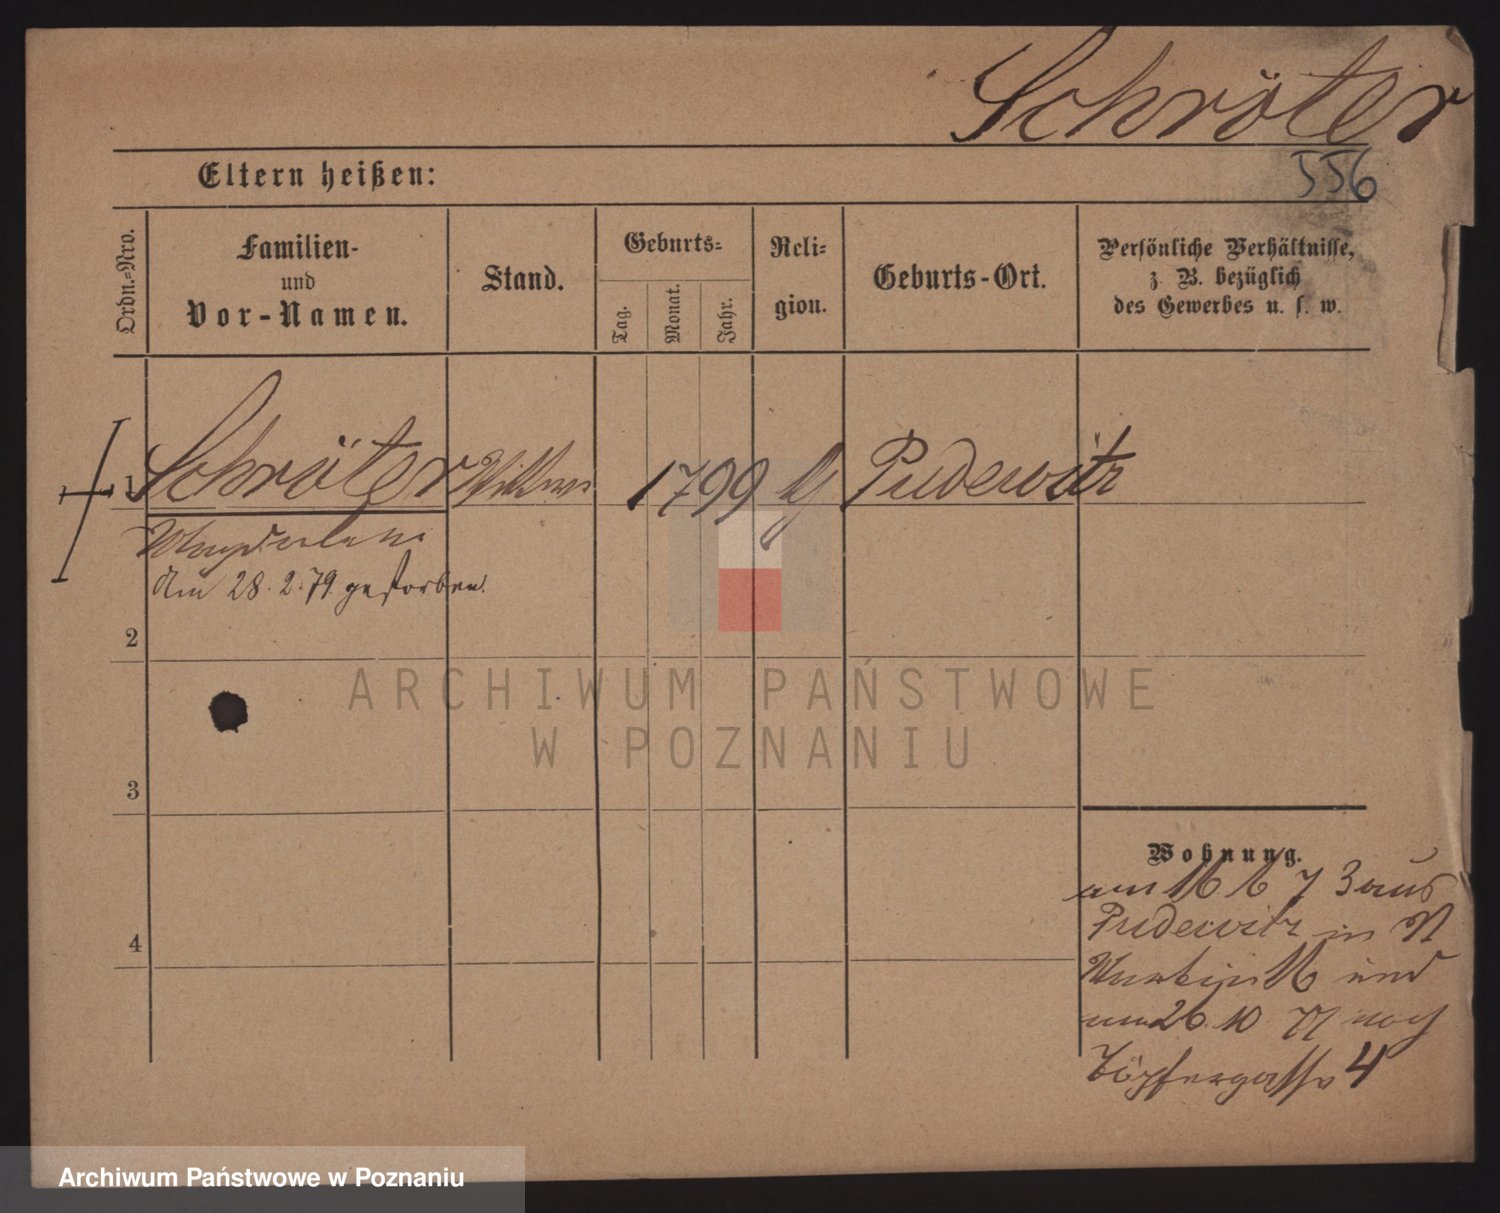 Schröter
556
Eltern heißen:
Ordn.-Nro.
Familien-
und
Vor-Namen.
Stand.
Geburts-
Tag.
Monat.
Jahr.
Reli-
gion.
Geburts-Ort.
Persönliche Verhältnisse,
z. B. bezüglich
des Gewerbes u. s. w.
1 Schröter Wittwe 1799 Pudewitz
Magdalena
Am 28.2.79. gestorben.
2
3
4
Wohnung.
am 16 6 73 aus
Pudewitz in St
Martin 16 und
am 26. 10. 77 nach
Töpfergasse 4
ARCHIWUM PAŃSTWOWE
W POZNANIU
Archiwum Państwowe w Poznaniu